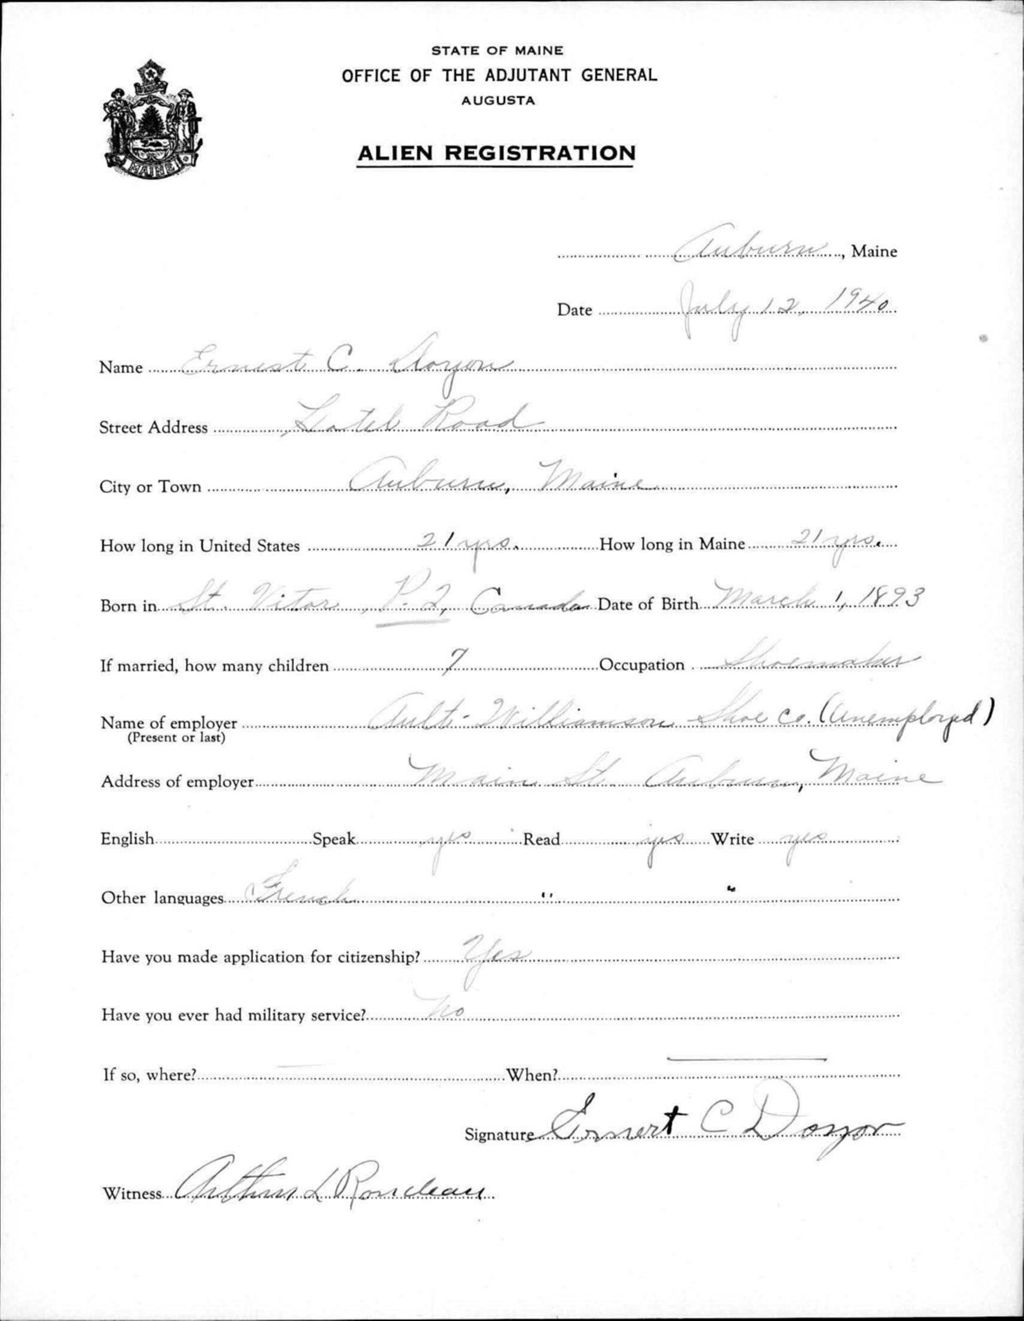 STATE OF MAINE
OFFICE OF THE ADJUTANT GENERAL
AUGUSTA
ALIEN REGISTRATION
MAINE
Auburn, Maine
Date July 12, 1940
Name Ernest C. Doyon
Street Address Hotel Road
City or Town Auburn, Maine
How long in United States 21 yrs. How long in Maine 21 yrs.
Born in St. Vitor, P. Q, Canada Date of Birth March 1, 1893
If married, how many children 7 Occupation Shoemaker
Name of employer Ault-Williamson Shoe Co. (Unemployed)
(Present or last)
Address of employer Main St. Auburn, Maine
English Speak yes Read yes Write yes
Other languages French " "
Have you made application for citizenship? Yes
Have you ever had military service? No
If so, where? — When? —
Signature Ernest C Doyon
Witness Arthur L Rondeau